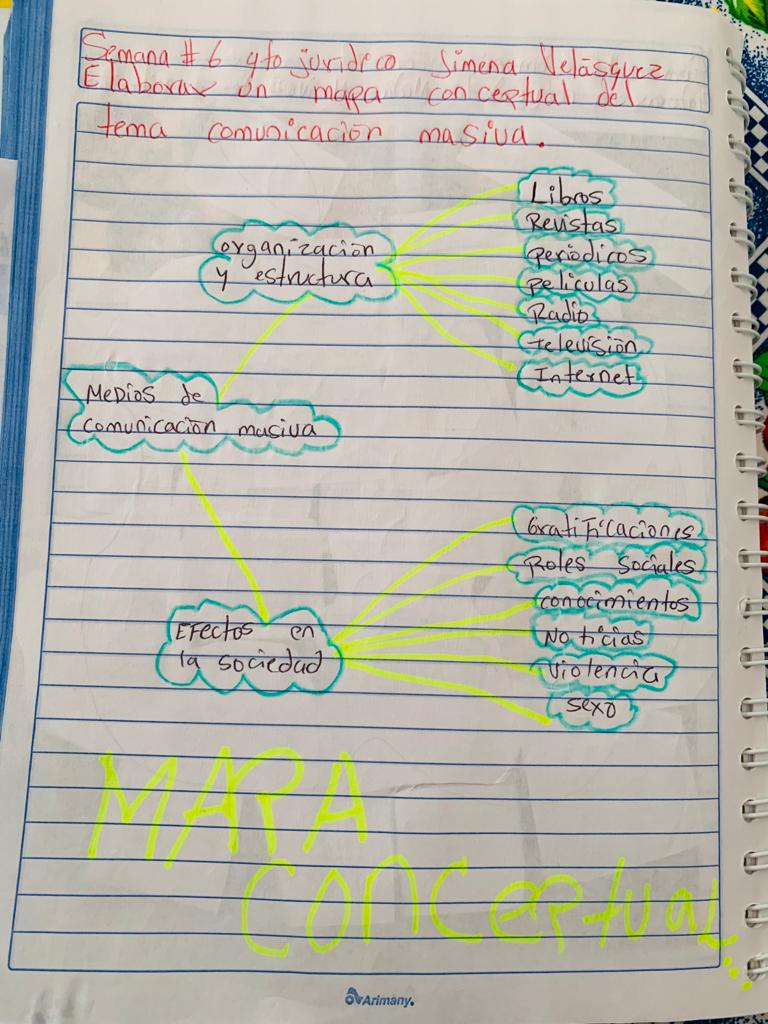 Semana #6 4to jurídico Jimena Velásquez
Elaborar un mapa conceptual del
tema comunicación masiva.
Libros
Revistas
periódicos
películas
Radio
televisión
Internet
organización
y estructura
Medios de
comunicación masiva
Gratificaciones
Roles Sociales
conocimientos
Noticias
violencia
sexo
Efectos en
la sociedad
MAPA
CONCEPTUAL...
Arimany.